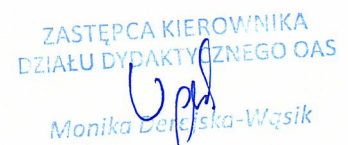 ZASTĘPCA KIEROWNIKA
DZIAŁU DYDAKTYCZNEGO OAS
Monika Derejska-Wąsik